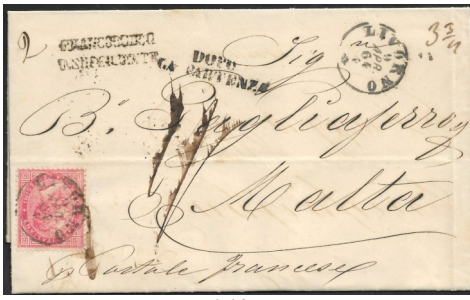 2
FRANCOBOLLO
INSUFFICIENTE
DOPO
LA PARTENZA
LIVORNO
Sig
B. Pagliaferro
Malta
Postale francese